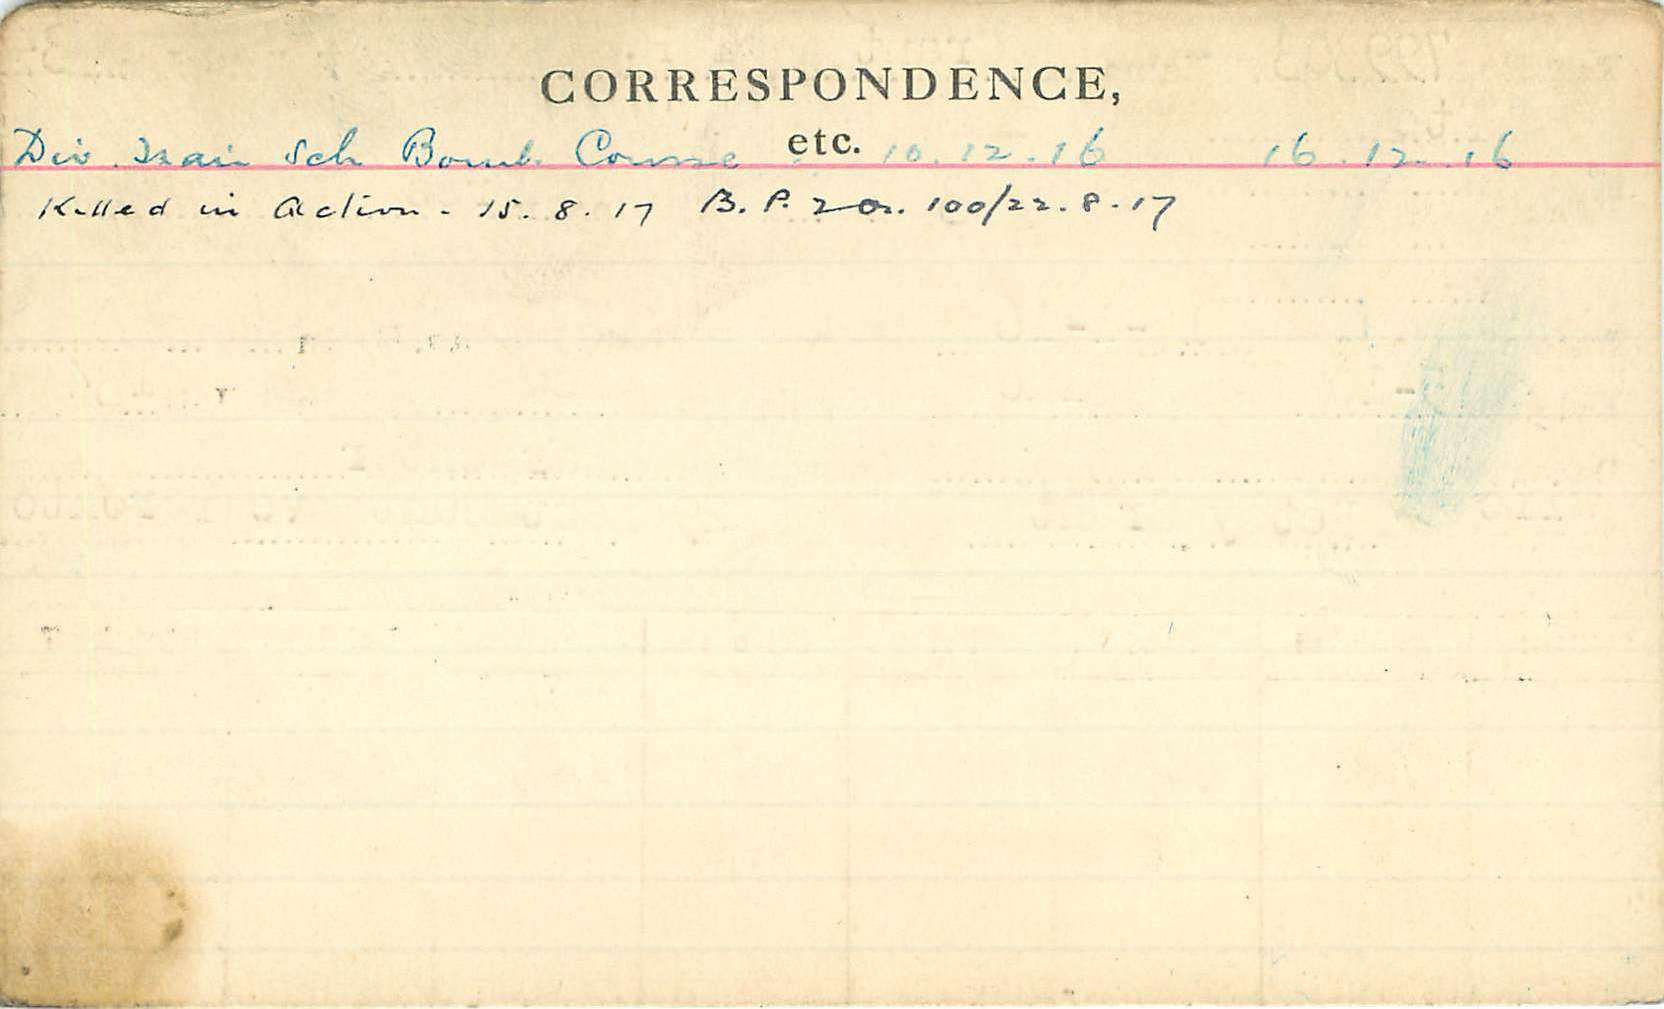 CORRESPONDENCE,
etc.
Div. Train Sch Bomb. Course 10.12.16 16.12.16
Killed in Action - 15.8.17 B.P. 2 Or. 100/22.8.17